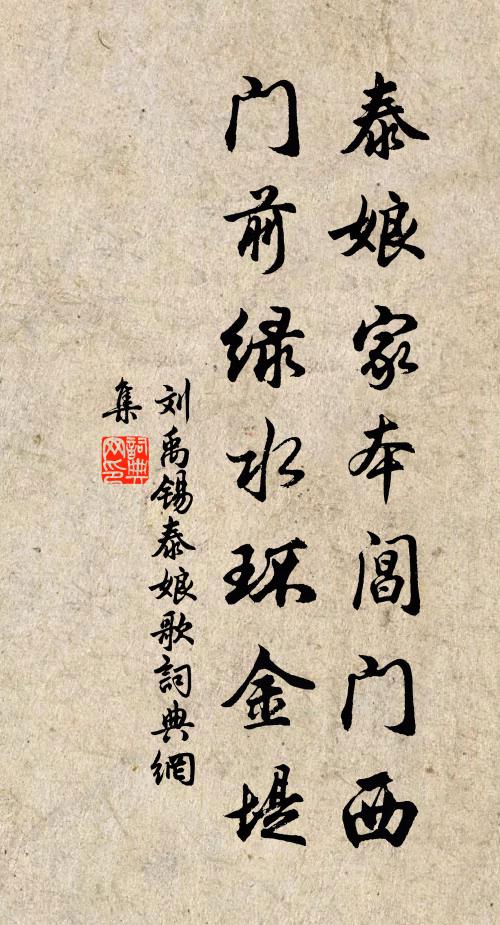 泰娘家本阊门西
门前绿水环金堤
刘禹锡泰娘歌詞典網
集
詞典
网印